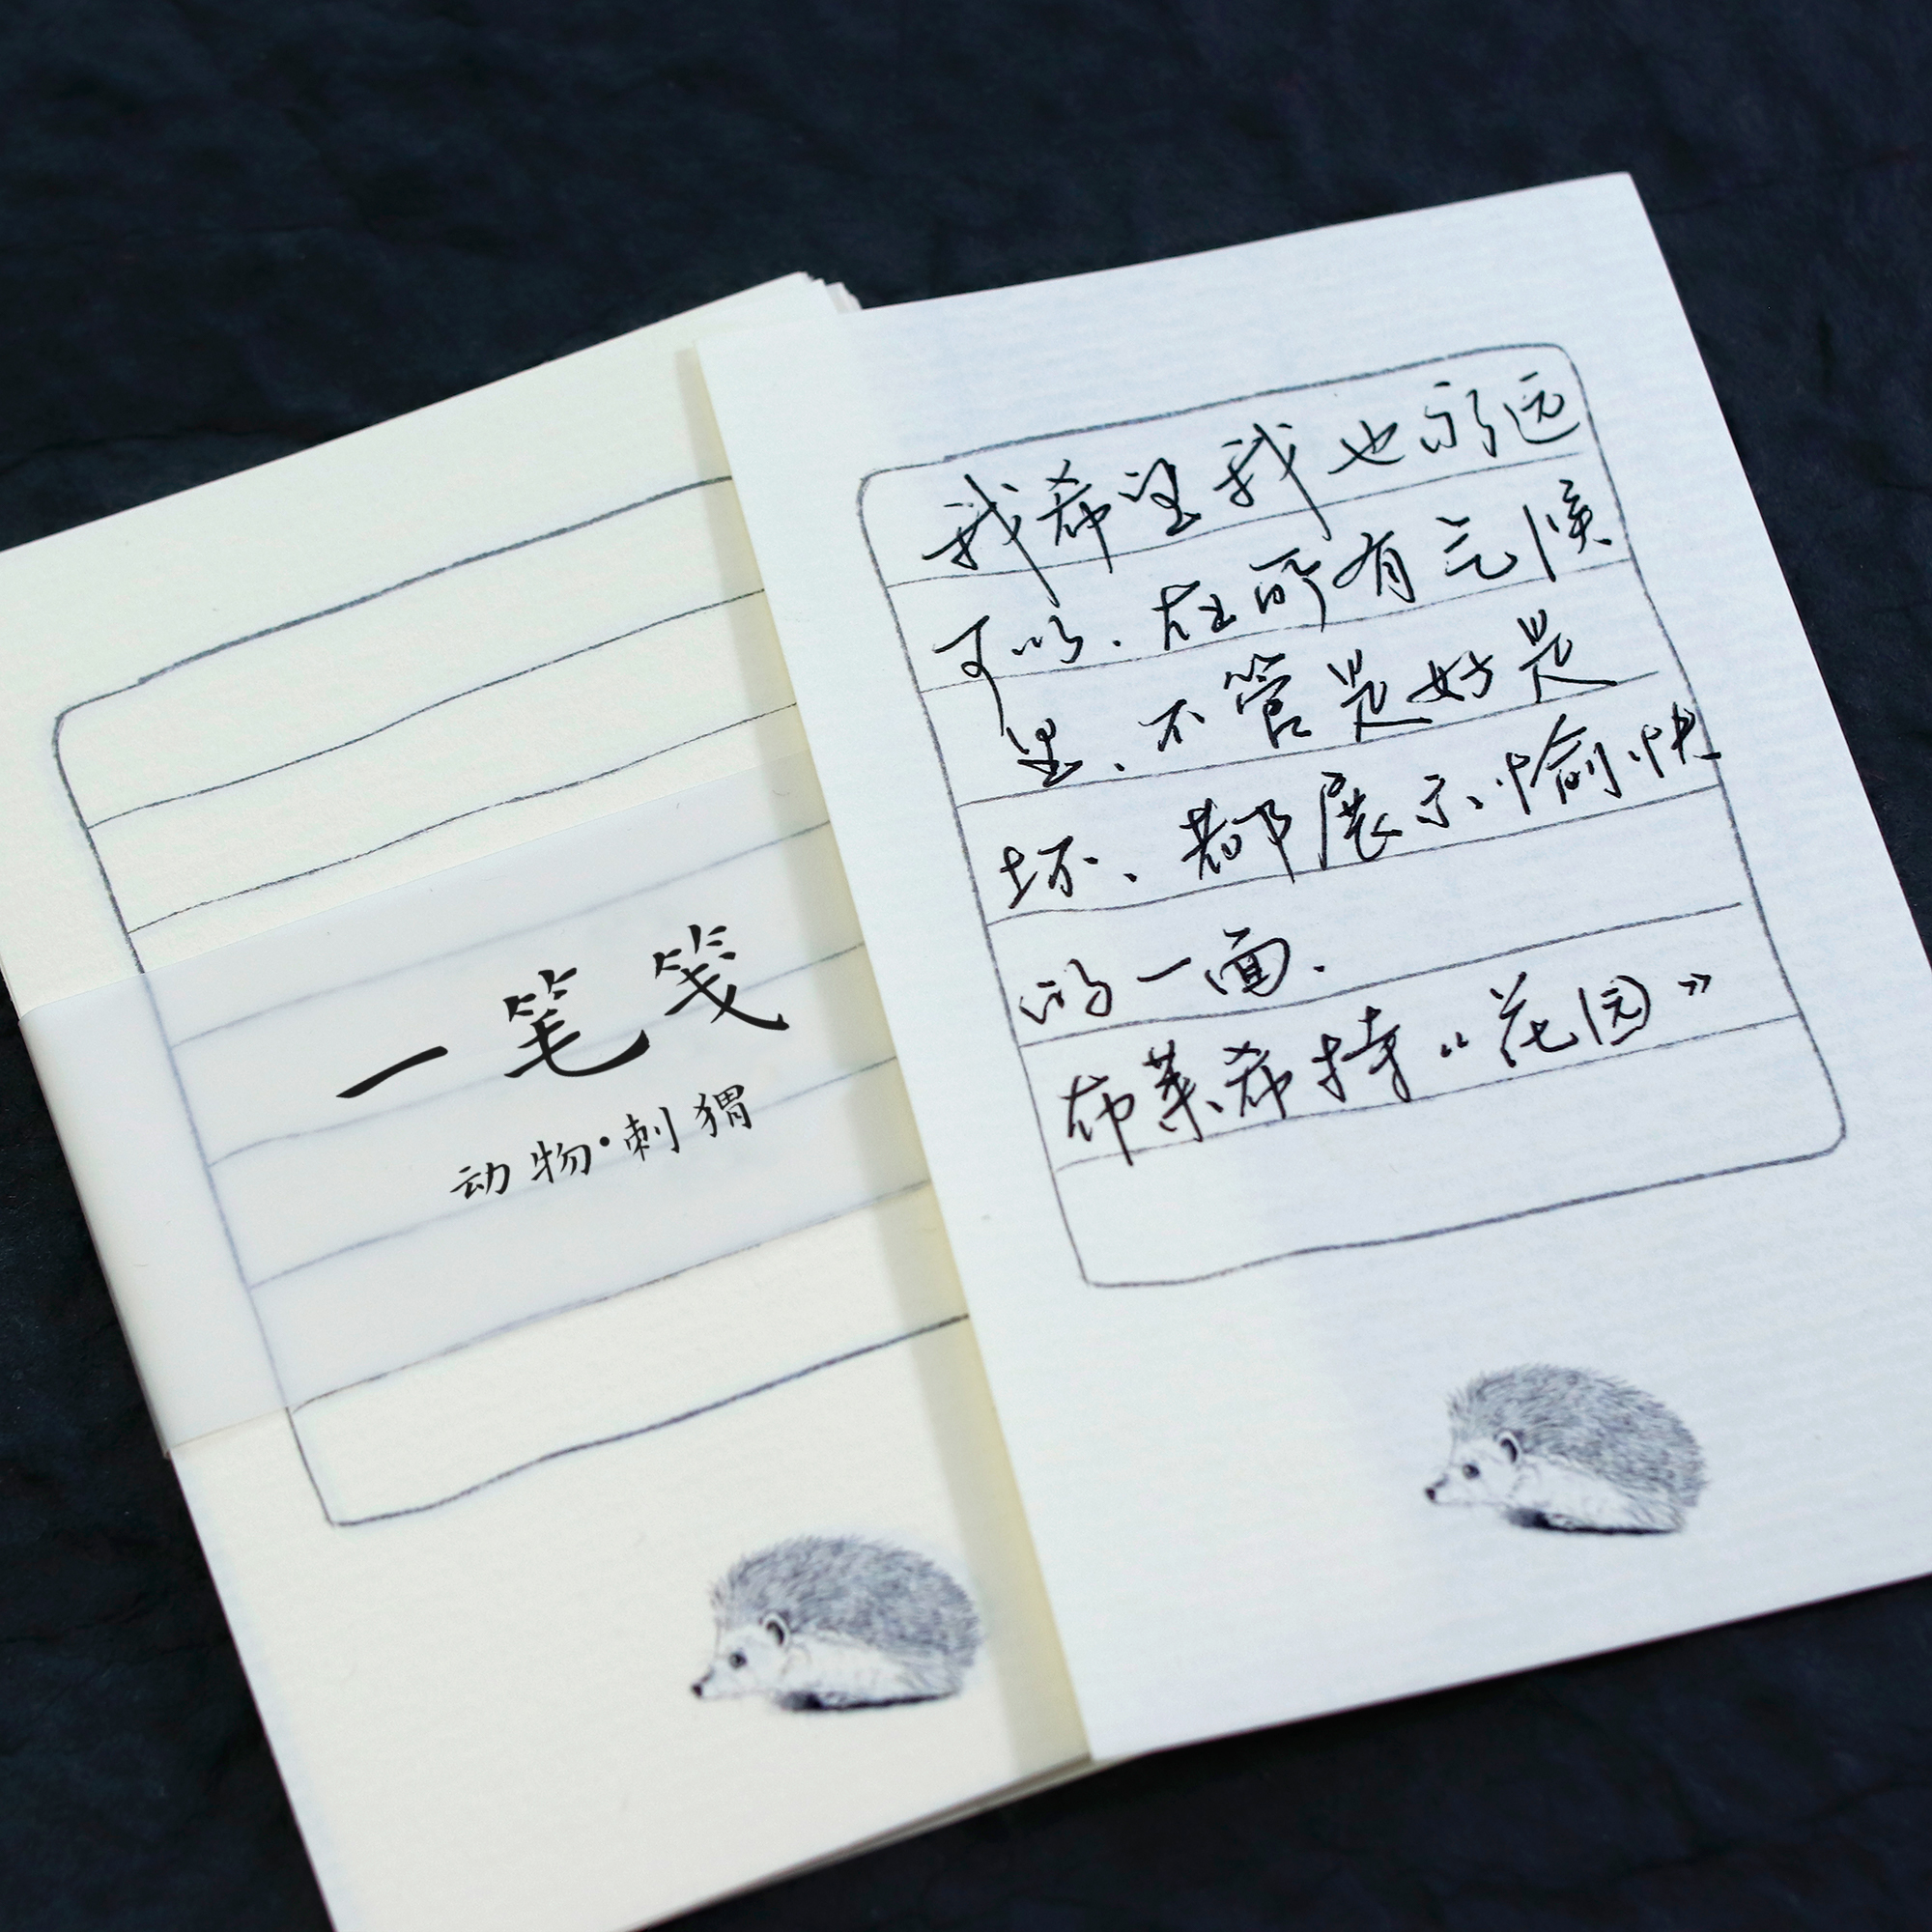 一笔笺
动物·刺猬
我希望我也永远
可以.在所有气候
里、不管是好是
坏、都展示愉快
的一面.
布莱希特“花园”